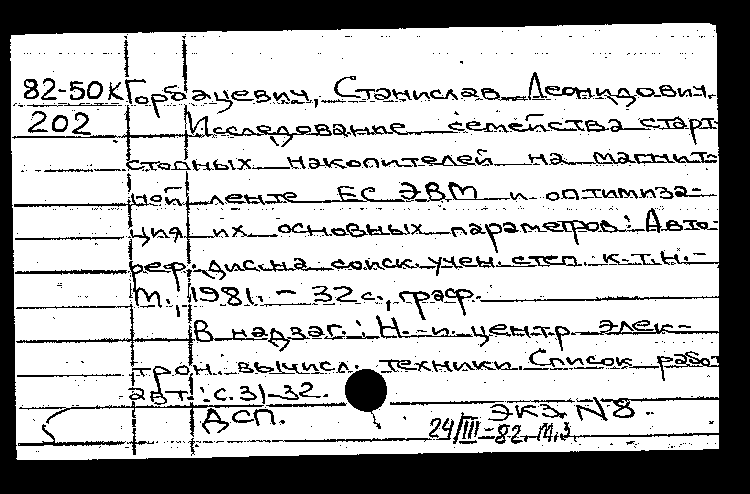 82-50к Горбацевич, Станислав Леонидович.
202 Исследование семейства старт-
стопных накопителей на магнит-
ной ленте ЕС ЭВМ и оптимиза-
ция их основных параметров: Авто-
реф. дис. на соиск. учен. степ. к.т.н. -
М., 1981. - 32 с., граф.
В надзаг.: Н.-и. центр элек-
трон. вычисл. техники. Список работ
авт.: с. 31-32.
ДСП. экз. N8.
24/III-82. М.З.